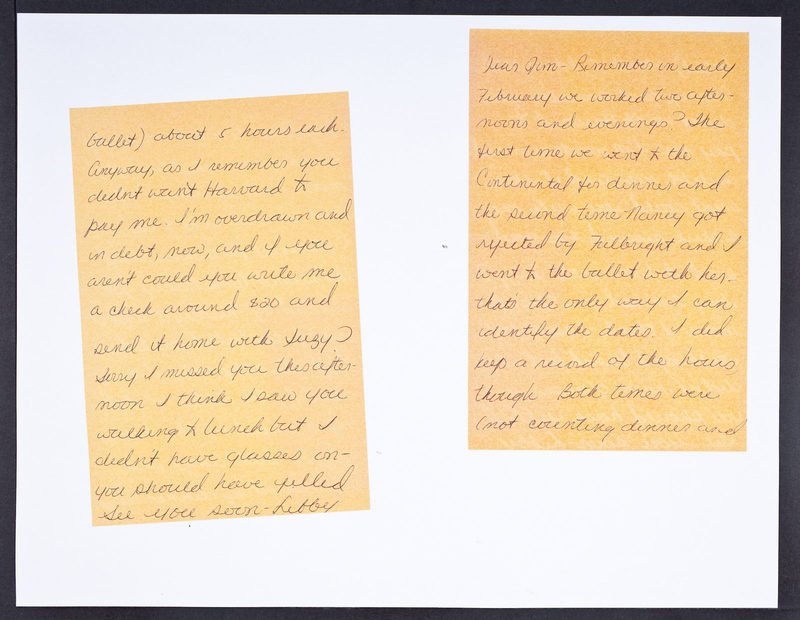 Dear Jim - Remember in early
February we worked two after-
noons and evenings? The
first time we went to the
Continental for dinner and
the second time Nancy got
rejected by Fulbright and I
went to the ballet with her.
thats the only way I can
identify the dates. I did
keep a record of the hours
though Both times were
(not counting dinner and
ballet) about 5 hours each.
Anyway, as I remember you
didnt want Harvard to
pay me. I'm overdrawn and
in debt, now, and if you
arent could you write me
a check around $20 and
send it home with Suzy?
Sorry I missed you this after-
noon I think I saw you
walking to lunch but I
didnt have glasses on -
you should have yelled
See you soon - Libby